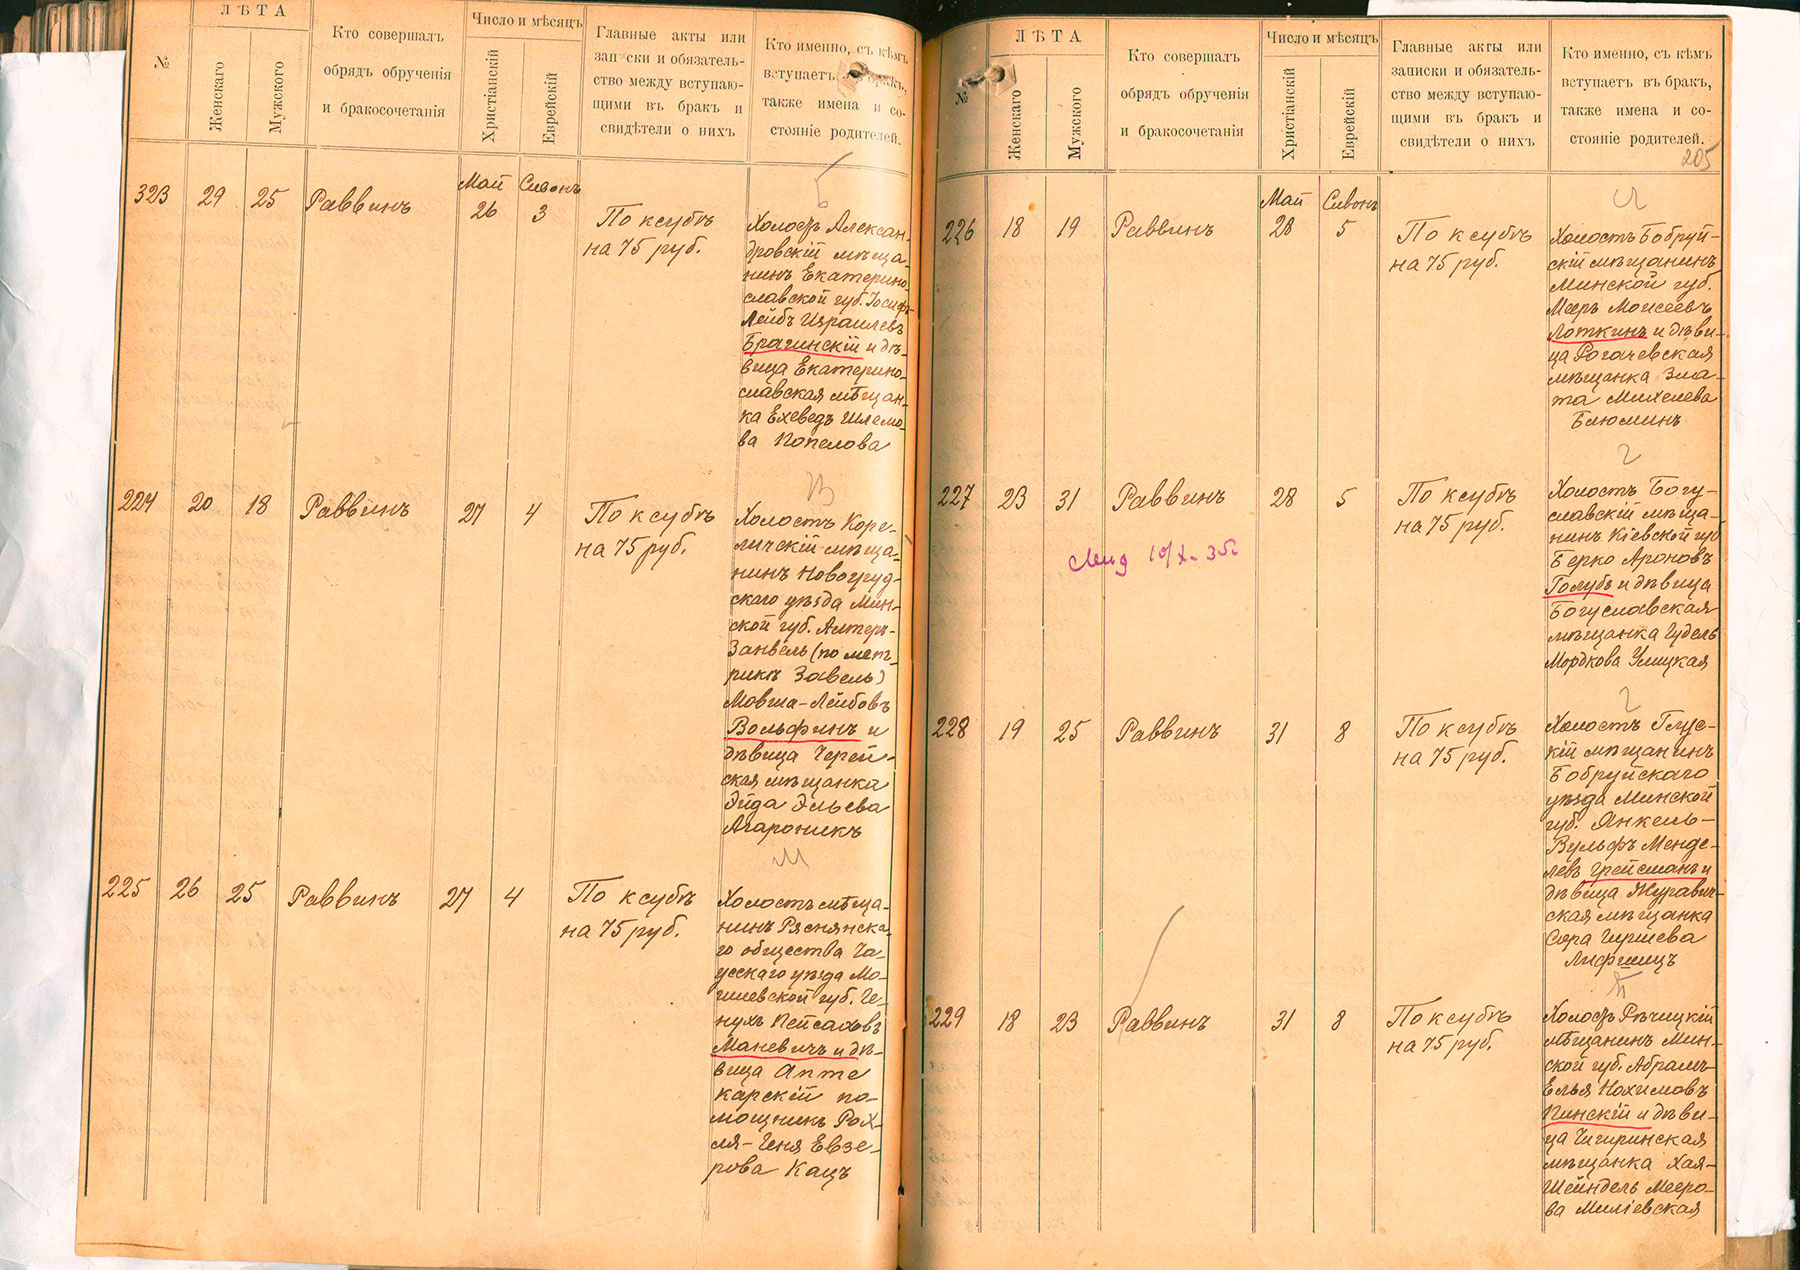 №
ЛѢТА
Женскаго
Мужского
Кто совершалъ
обрядъ обрученія
и бракосочетанія
Число и мѣсяцъ
Христіанскій
Еврейскій
Главные акты или
записки и обязатель-
ство между вступаю-
щими въ бракъ и
свидѣтели о нихъ
Кто именно, съ кѣмъ
вступаетъ
также имена и со-
стояніе родителей.
323
29
25
Раввинъ
Май
26
Сивонъ
3
По ксубѣ
на 75 руб.
Б
Холостъ Алексан-
дровскій мѣща-
нинъ Екатерино-
славской губ. Іосифъ-
Лейбъ Израилевъ
Брагинскій и дѣ-
вица Екатерино-
славская мѣщан-
ка Ехеведъ Шлемо-
ва Копелова
224
20
18
Раввинъ
27
4
По ксубѣ
на 75 руб.
В
Холостъ Коре-
личскій мѣща-
нинъ Новогруд-
скаго уѣзда Мин-
ской губ. Алтеръ-
Занвель (по мет-
рикѣ Завель)
Мовша-Лейбовъ
Вольфинъ и
дѣвица Черей-
ская мѣщанка
Эйда Эльева
Агароникъ
225
26
25
Раввинъ
27
4
По ксубѣ
на 75 руб.
М
Холостъ мѣща-
нинъ Ряснянска-
го общества Ча-
усскаго уѣзда Мо-
гилевской губ. Ге-
нухъ Пейсаховъ
Маневичъ и дѣ-
вица Апте
карскій по-
мощникъ Рох-
ля-Геня Евзе-
рова Кацъ
№
ЛѢТА
Женскаго
Мужского
Кто совершалъ
обрядъ обрученія
и бракосочетанія
Число и мѣсяцъ
Христіанскій
Еврейскій
Главные акты или
записки и обязатель-
ство между вступаю-
щими въ бракъ и
свидѣтели о нихъ
Кто именно, съ кѣмъ
вступаетъ въ бракъ,
также имена и со-
стояніе родителей.
205
226
18
19
Раввинъ
Май
28
Сивонъ
5
По ксубѣ
на 75 руб.
Л
Холостъ Бобруй-
скій мѣщанинъ
Минской губ.
Мееръ Моисеевъ
Лоткинъ и дѣви-
ца Рогачевская
мѣщанка Зла-
та Михелева
Блюминъ
227
23
31
Раввинъ
28
5
По ксубѣ
на 75 руб.
Г
Холостъ Богу-
славскій мѣща-
нинъ Кіевской губ
Берко Ароновъ
Голубъ и дѣвица
Богуславская
мѣщанка Гудель
Мордкова Улицкая
10/X-35г
228
19
25
Раввинъ
31
8
По ксубѣ
на 75 руб.
Г
Холостъ Глус-
кій мѣщанинъ
Бобруйскаго
уѣзда Минской
губ. Янкель-
Вульфъ Менде-
левъ Грейсманъ и
дѣвица Журавич-
ская мѣщанка
Сора Гиршева
Лифшицъ
229
18
23
Раввинъ
31
8
По ксубѣ
на 75 руб.
П
Холостъ Рѣчицкій
мѣщанинъ Мин-
ской губ. Абрамъ-
Елья Нохимовъ
Пинскій и дѣви-
ца Чигиринская
мѣщанка Хая-
Шейндель Мееро-
ва Миліевская